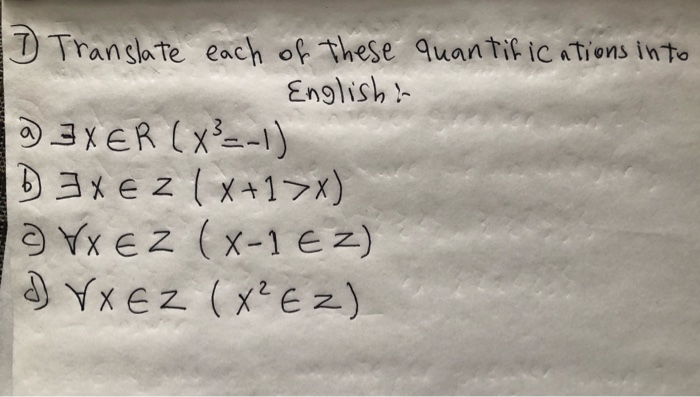 I) Translate each of these quantifications into
English :-
a) ∃x∈R (x³=-1)
b) ∃x∈Z (x+1>x)
c) ∀x∈Z (x-1∈Z)
d) ∀x∈Z (x²∈Z)